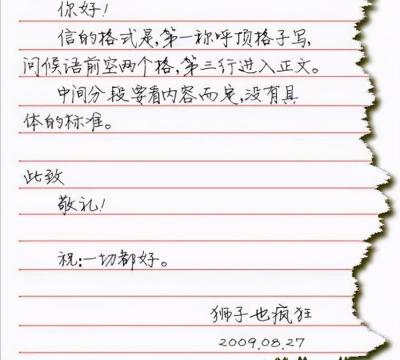 你好！
信的格式是，第一称呼顶格子写，
问候语前空两个格，第三行进入正文。
中间分段要看内容而定，没有具
体的标准。
此致
敬礼！
祝：一切都好。
狮子也疯狂
2009.08.27